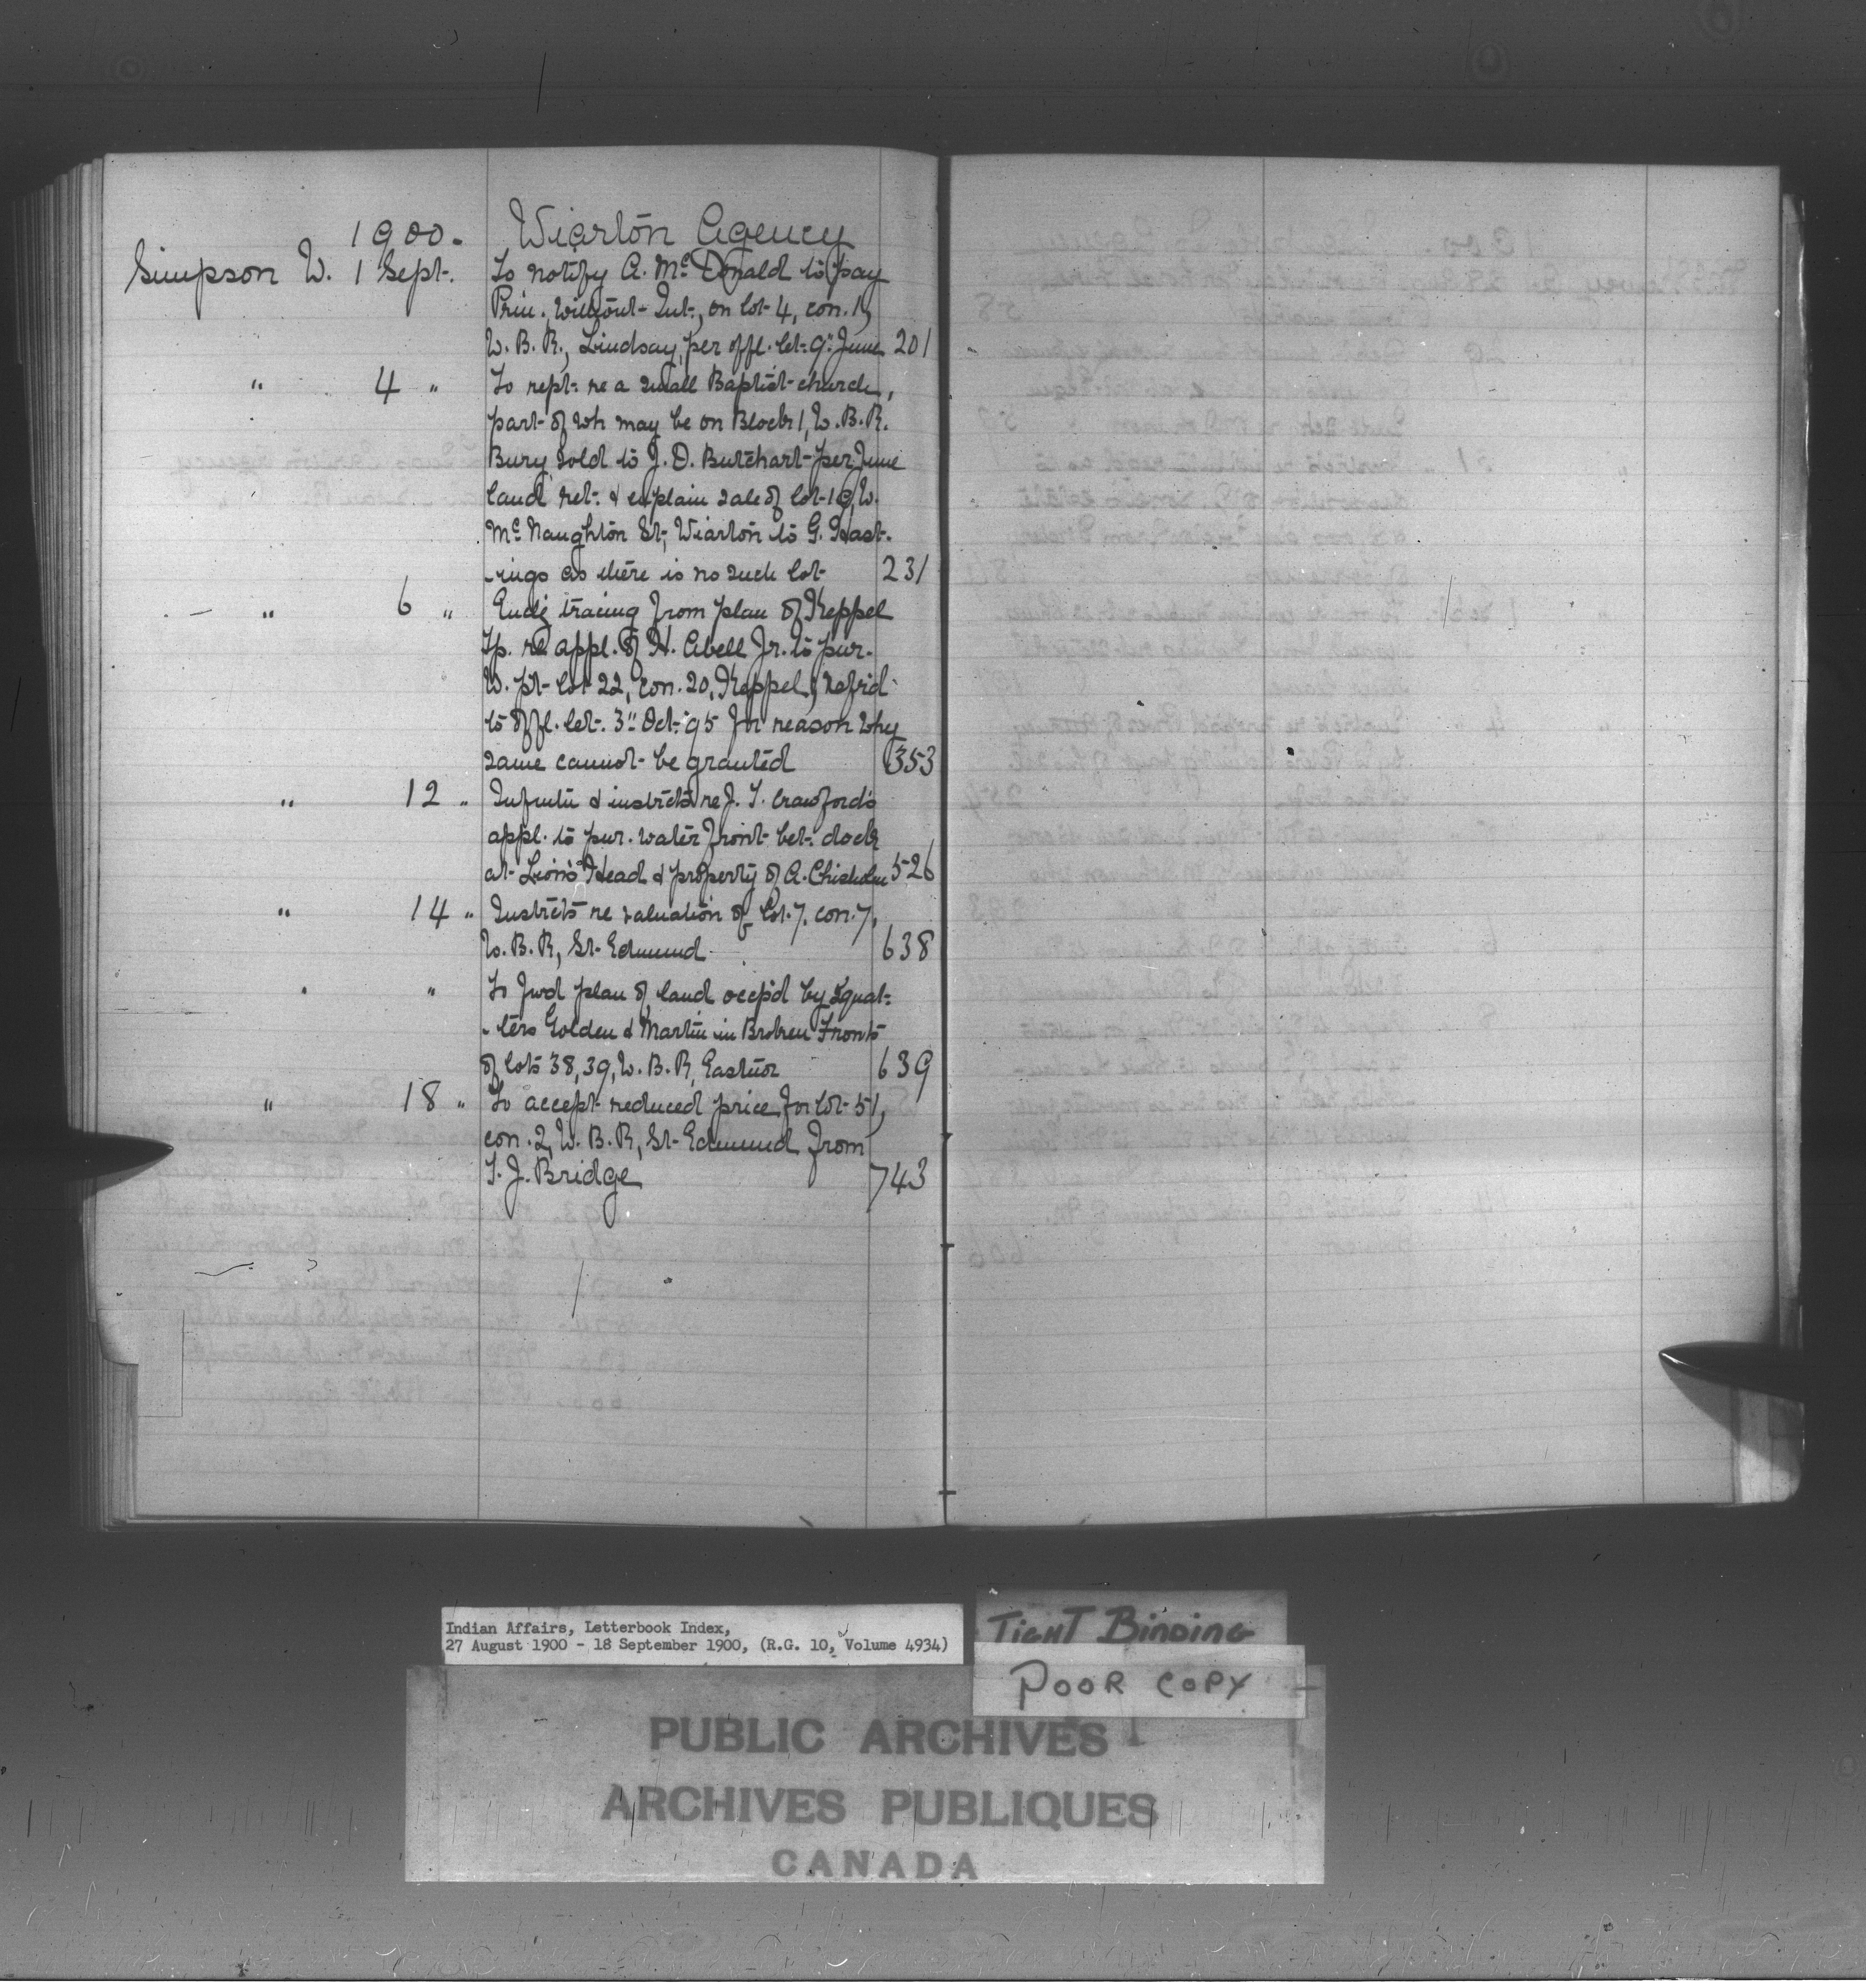 1900. Wiarton Agency
Simpson W. 1 Sept. To notify A. McDonald to pay
Prin. without Int., on lot 4, con. 1,
W. B. R., Lindsay, per offl. let. 9" June 201
" 4 " To rept. re a small Baptist church,
part of wh may be on Block 1, W. B. R.
Bury sold to J. D. Butchart per June
land ret. & explain sale of lot 10, W.
McNaughton St, Wiarton to G. Hast-
-ings as there is no such lot 231
" 6 " Encl'g tracing from plan of Keppel
Tp. re appl. of H. Abell Jr. to pur.
W. pt lot 22, con. 20, Keppel, & refrid
to offl. let. 3" Oct. '95 for reason why
same cannot be granted 353
" 12 " Infmtn & instrcts re J. T. Crawford's
appl. to pur. water front bet. dock
at Lion's Head & property of A. Chisholm 526
" 14 " Instrcts re valuation of lot 7, con. 7,
W. B. R, St Edmund 638
" " To fwd plan of land occp'd by Squat-
-ters Golden & Martin in Broken Fronts
of lots 38, 39, W. B. R, Eastnor 639
" 18 " To accept reduced price for lot 51,
con. 2, W. B. R, St Edmund from
T. J. Bridge 743
Indian Affairs, Letterbook Index,
27 August 1900 - 18 September 1900, (R.G. 10, Volume 4934)
TIGHT BINDING
POOR COPY
PUBLIC ARCHIVES
ARCHIVES PUBLIQUES
CANADA